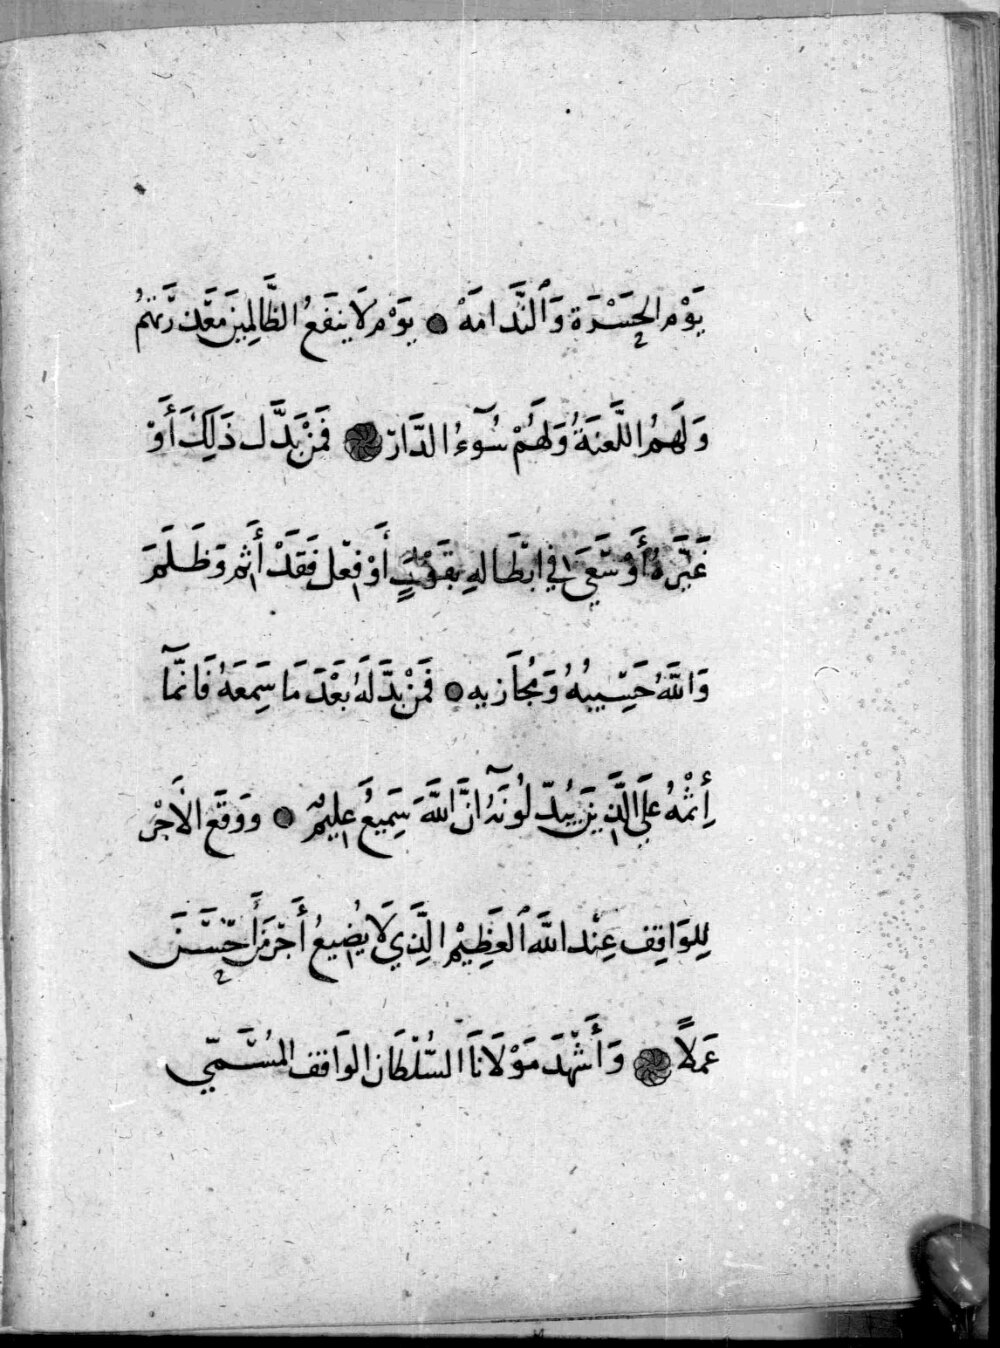 يَوْمِ الحَسْرَةِ وَٱلنَّدَامَهْ ۝ يَوْمَ لَا يَنفَعُ الظَّالِمِينَ مَعْذِرَتُهُمْ
وَلَهُمُ اللَّعْنَةُ وَلَهُمْ سُوٓءُ الدَّارِ ۝ فَمَنْ بَدَّلَ ذَلِكَ أَوْ
غَيَّرَهُ أَوْ سَعَىٰ فِي ابْطَالِهِ بِقَوْلٍ أَوْ فِعْلٍ فَقَدْ أَثِمَ وَظَلَمَ
وَاللَّهُ حَسِيبُهُ وَمُجَازِيهِ ۝ فَمَنْ بَدَّلَهُ بَعْدَ مَا سَمِعَهُ فَانَّمَآ
إِثْمُهُ عَلَى الَّذِينَ يُبَدِّلُونَهُ انَّ اللَّهَ سَمِيعٌ عَلِيمٌ ۝ ووَقَعَ الأَجْرُ
لِلوَاقِفِ عِنْدَ اللَّهِ ٱلعَظِيْمِ الَّذِي لَا يُضِيعُ أَجْرَ مَنْ أَحْسَنَ
عَمَلاً ۝ وَأَشْهَدَ مَوْلَانَا السُّلْطَان الوَاقف المُسَمَّى